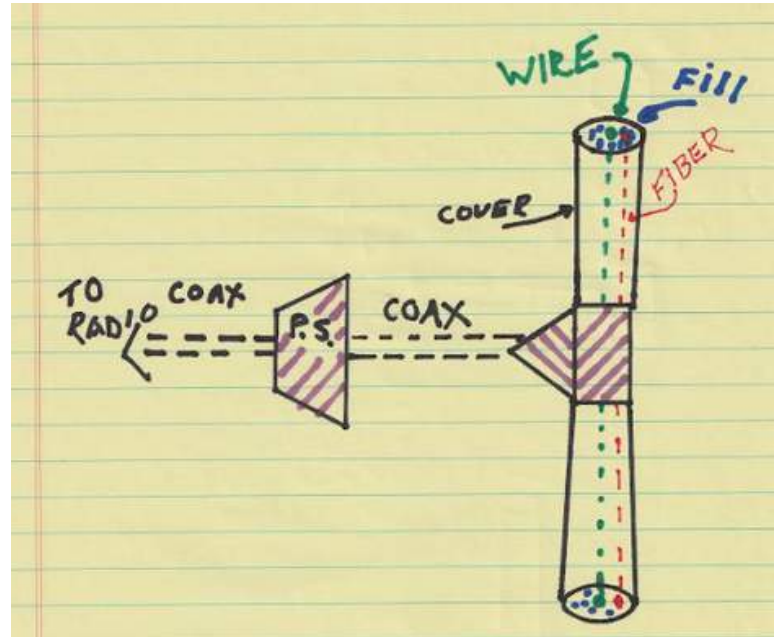 WIRE
Fill
FIBER
COVER
TO
RADIO
COAX
P.S.
COAX